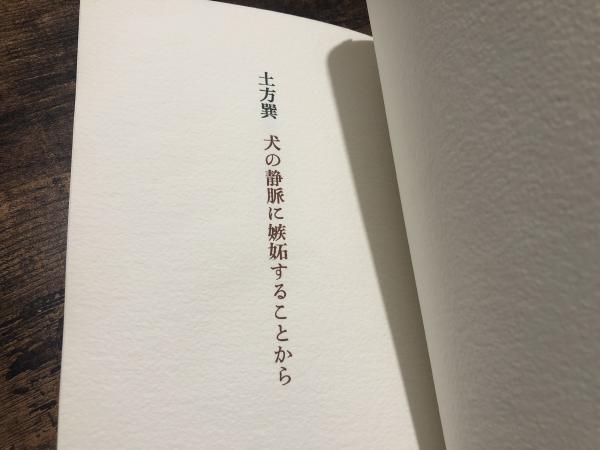 土方巽 犬の静脈に嫉妬することから